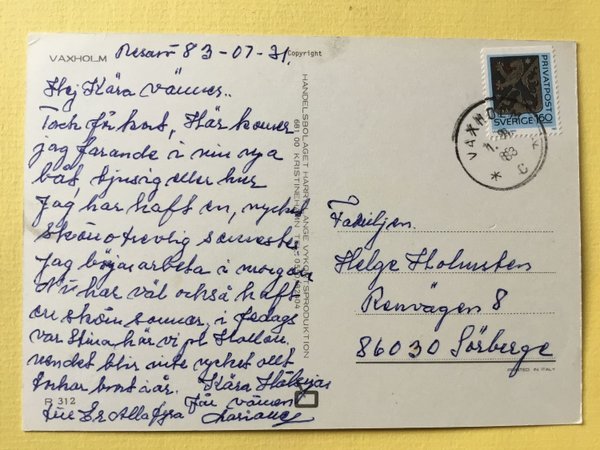 VAXHOLM
Resarö 83-07-31.
Copyright
Hej Kära vänner..
Tack för kort, Här kommer
jag farande i min nya
båt, tjusig eller hur
Jag har haft en, mycket
skön o trevlig semester
Jag börjar arbeta i morgon
Ni har väl också haft
en skön sommar, i
var Stina här vi på
blir inte mycket allt
torkar bort i år. Kära Hälsningar
från vännen
till Er Alla fyra Marianne
R 312
HANDELSBOLAGET HARRY LANGE VYKORTSPRODUKTION
681 00 KRISTINEHAMN
PRIVATPOST
SVERIGE 160
VAXHOLM
1. 8
83
* C *
Familjen
Helge Holmsten
Renvägen 8
86030 Sörberge
PRINTED IN ITALY